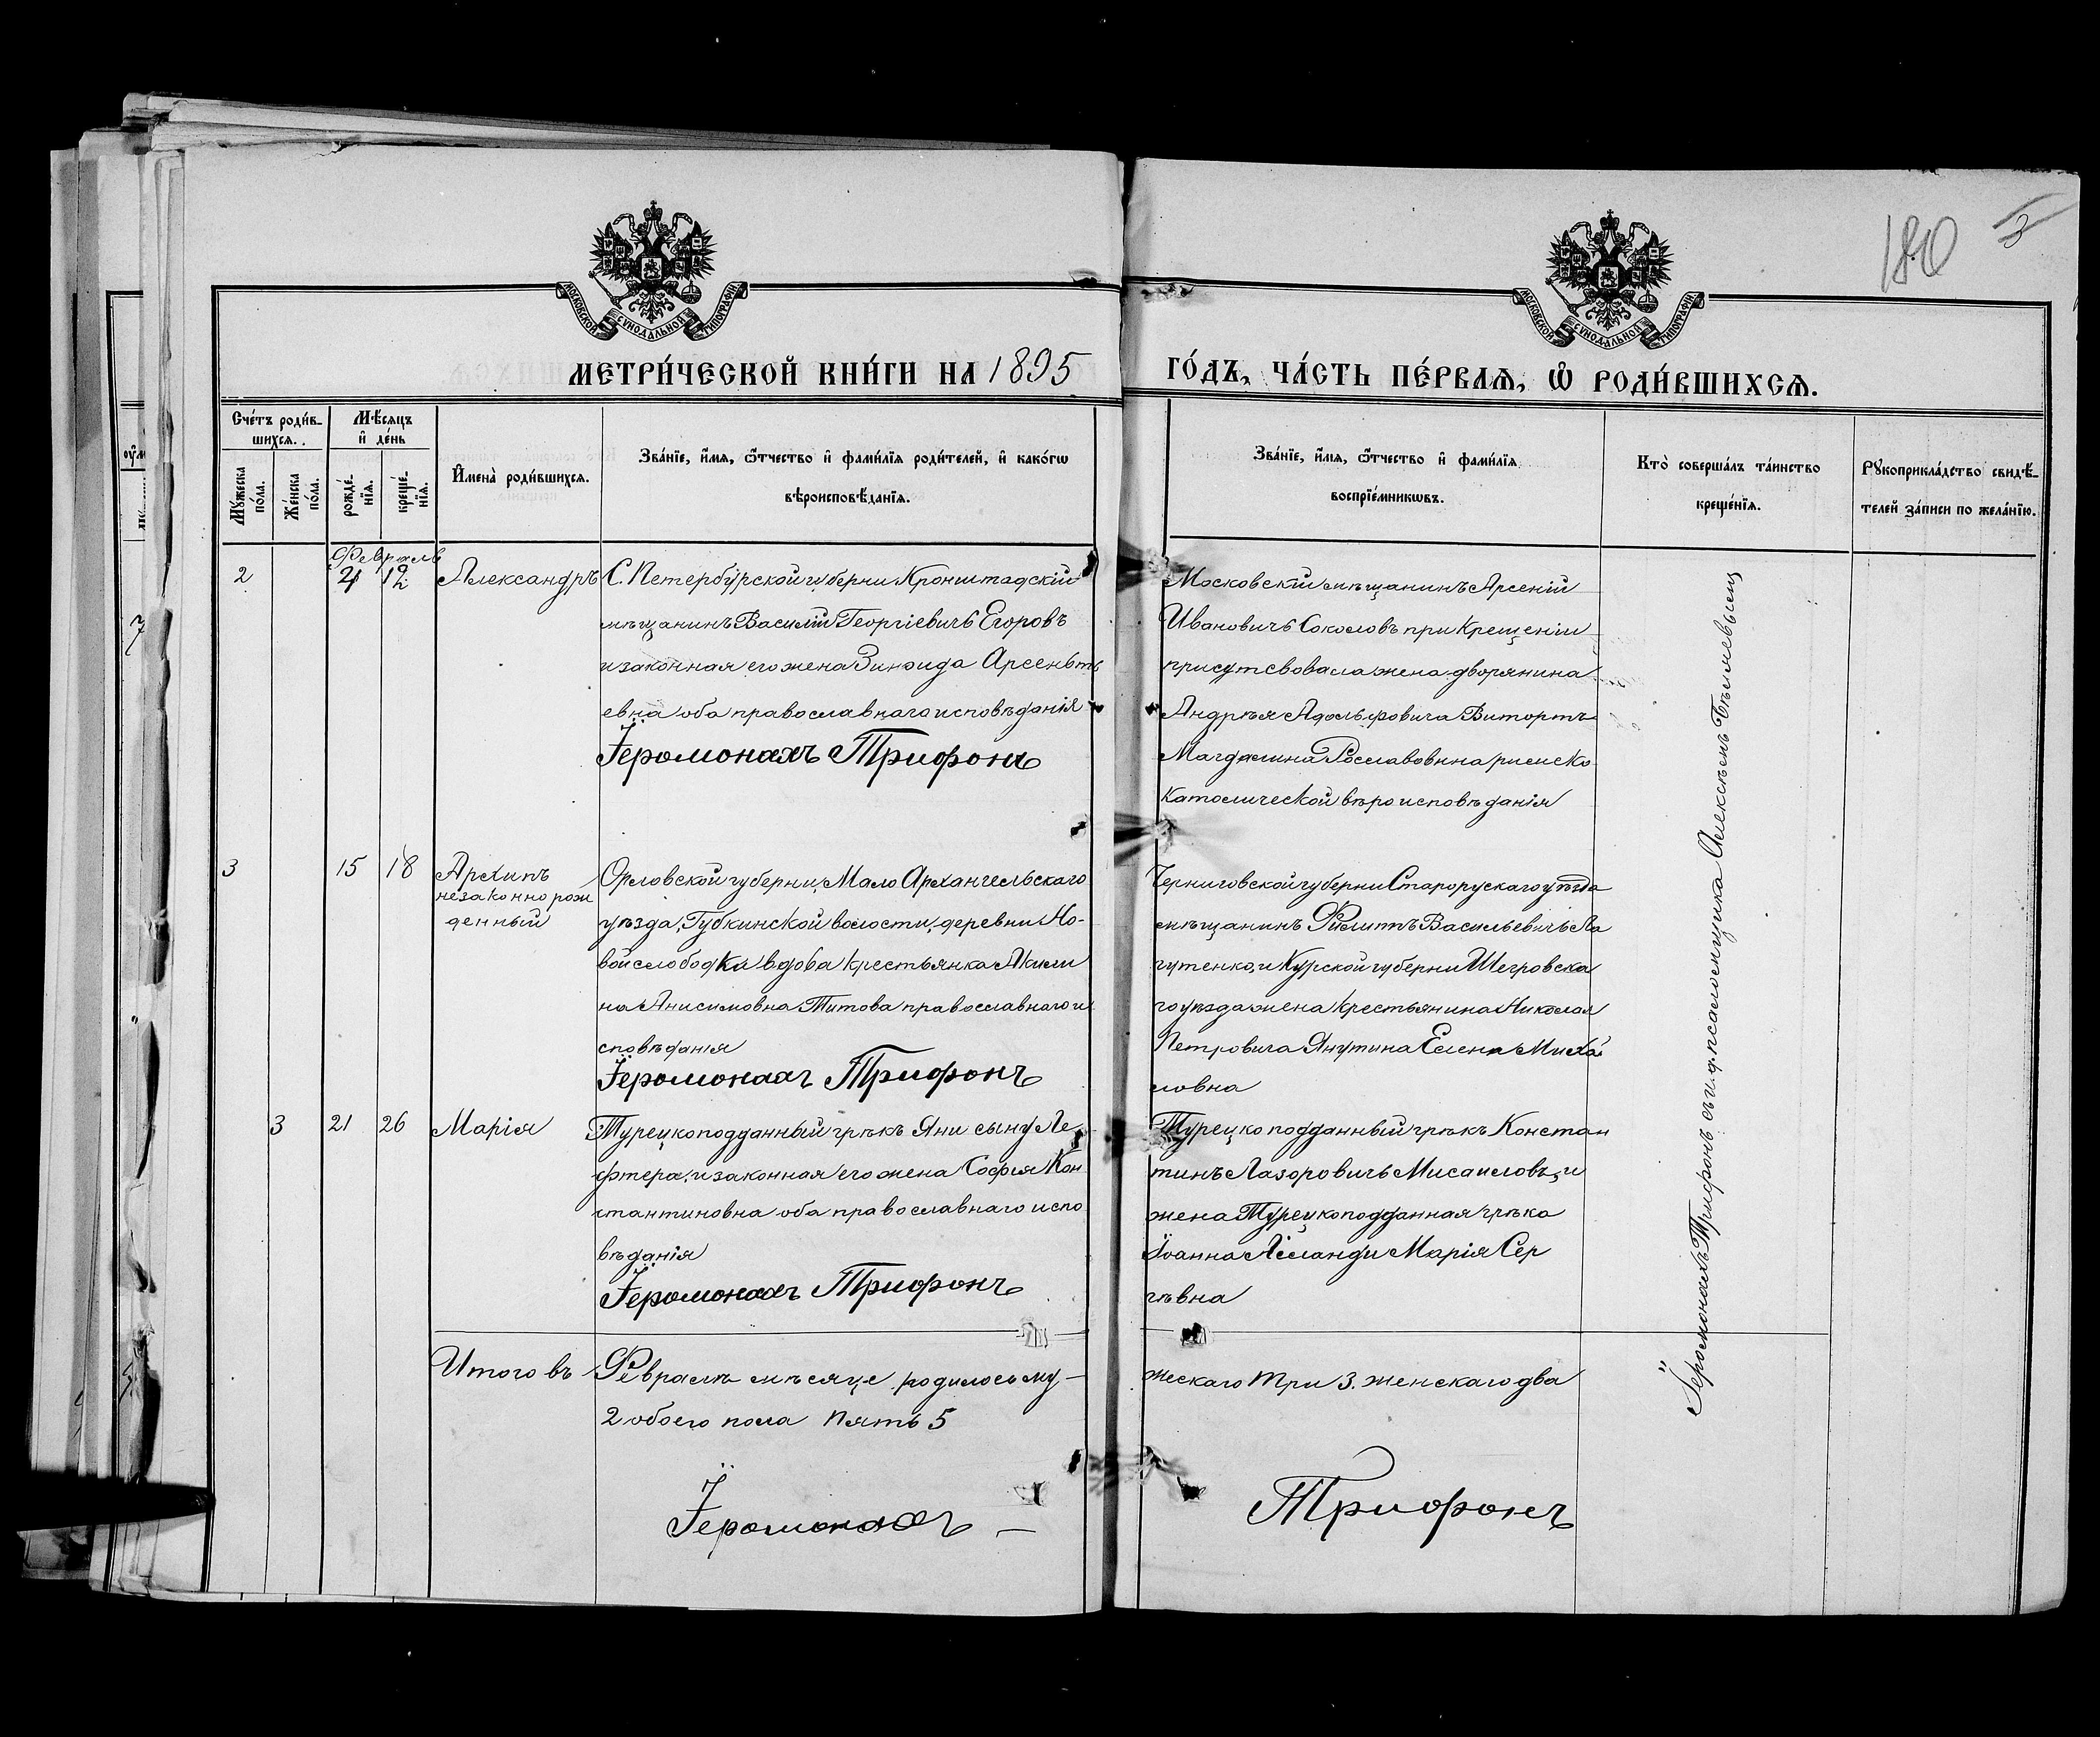 180 3
МОСКОВСКОЙ СѴНОДАЛЬНОЙ ТИПОГРАФІИ
МОСКОВСКОЙ СѴНОДАЛЬНОЙ ТИПОГРАФІИ
МЕТРИ́ЧЕСКОЙ КНИ́ГИ НА 1895
ГО́ДЪ, ЧА́СТЬ ПЕ́РВАѦ, Ѽ РОДИ́ВШИХСѦ.
Сче́тъ роди́в-
шихся.
Мѣ́сяцъ
и҆ де́нь
Мꙋ́жеска по́ла.
Же́нска по́ла.
рожде́-
нїя.
креще́-
нїя.
И҆мена̀ роди́вшихся.
Зва́нїе, и҆́мя, ѻ҆́тчество и҆ фами́лїя роди́телей, и҆ како́гѡ
вѣроисповѣ́данїя.
Зва́нїе, и҆́мя, ѻ҆́тчество и҆ фами́лїя
воспрїе́мникѡвъ.
Кто̀ соверша́лъ та́инство
креще́нїя.
Рꙋкоприкла́дство свидѣ́-
телей за́писи по жела́нїю.
Февраль
2 4 12 Александръ
С. Петербургской губерни Кронштадскій
мѣщанинъ Василій Георгіевичъ Егоровъ
и законная его жена Зиноида Арсеньть
евна оба православнаго исповѣданія
Іеромонахъ Трифонъ
Московскій мѣщанинъ Арсеній
Ивановичъ Соколовъ при крещеніи
присутсвовала жена дворянина
Андрѣя Адольфовича Витортъ
Магдалина Рославовнна римско
католической вѣроисповѣданія
3 15 18 Архипъ
незаконнорож
денный
Орловской губерни, Мало Архангельскаго
уѣзда, Губкинской волости, деревни Но-
вой слободки вдова крестьянка Акили
на Анисимовна Титова православнаго и
сповѣданія
Іеромонахъ Трифонъ
Черниговской губерни Старорускаго уѣзда
мѣщанинъ Филипъ Васильевичъ Ла
гутенко, и Курской губерни Шегровска
го уѣзда жена крестьянина Николая
Петровича Янутина Елена Михай
ловна
3 21 26 Марія
Турецкоподданный грѣкъ Яни сынъ Ле-
фтера, и законная его жена Софія Кон
стантиновна оба православнаго испо
вѣданія
Іеромонахъ Трифонъ
Турецко подданный грѣкъ Констан
тинъ Лазоровичъ Мисаиловъ, и
жена Турецкоподданная грѣка
Іоанна Марія Сер
гѣвна
Іеромонахъ Трифонъ съ и. д. псаломщика Алексѣемъ
Итого въ Февралѣ мѣсяце родилось му-
жескаго три 3. женскаго два
2 обоего пола пять 5
Іеромонахъ —
Трифонъ